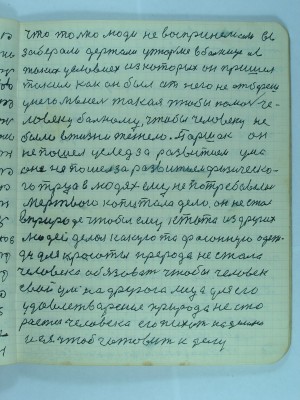 что только люди не воспринемали вы
заберали держали утюгме в балнице и
таких условиях из которых он пришел
таким как он был от него не отберем
у него мысел такая чтобы помоч че-
ловеку балному, чтобы человеку не
было в жизни тежело. Паршек он
не пошел услед за развитием ума
он не пошел за развитием физическо-
го труда в людях ему не потребовалось
мертвого капитала дело, он не стал
в природе чтобы ему кто то из других
людей делал какую то фасонную одеж-
ду для красоты природа не стала
человека обязовать чтобы человек
свой ум на другого лица для его
удовлетварения природа не ста
рается человека его пихнуть на дело
и ея чтоб готовить к делу